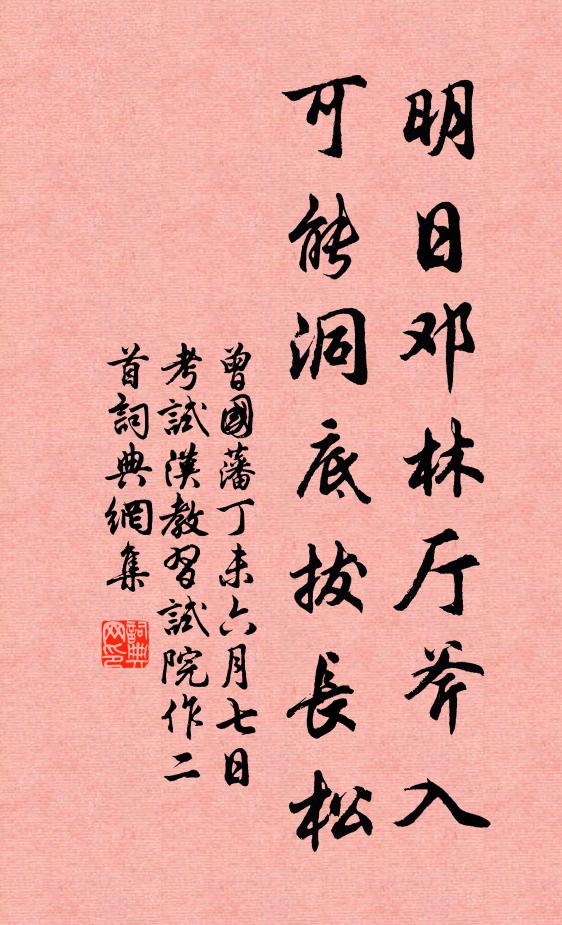 明日邓林厅斧入
可能洞底拔長松
曾國藩丁未六月七日
考試漢教習試院作二
首詞典網集
詞典
网印